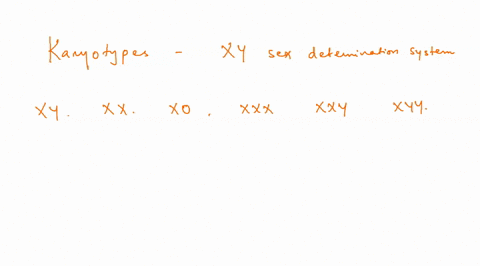 Karyotypes - XY sex determination system
XY. XX. XO, XXX XXY XYY.